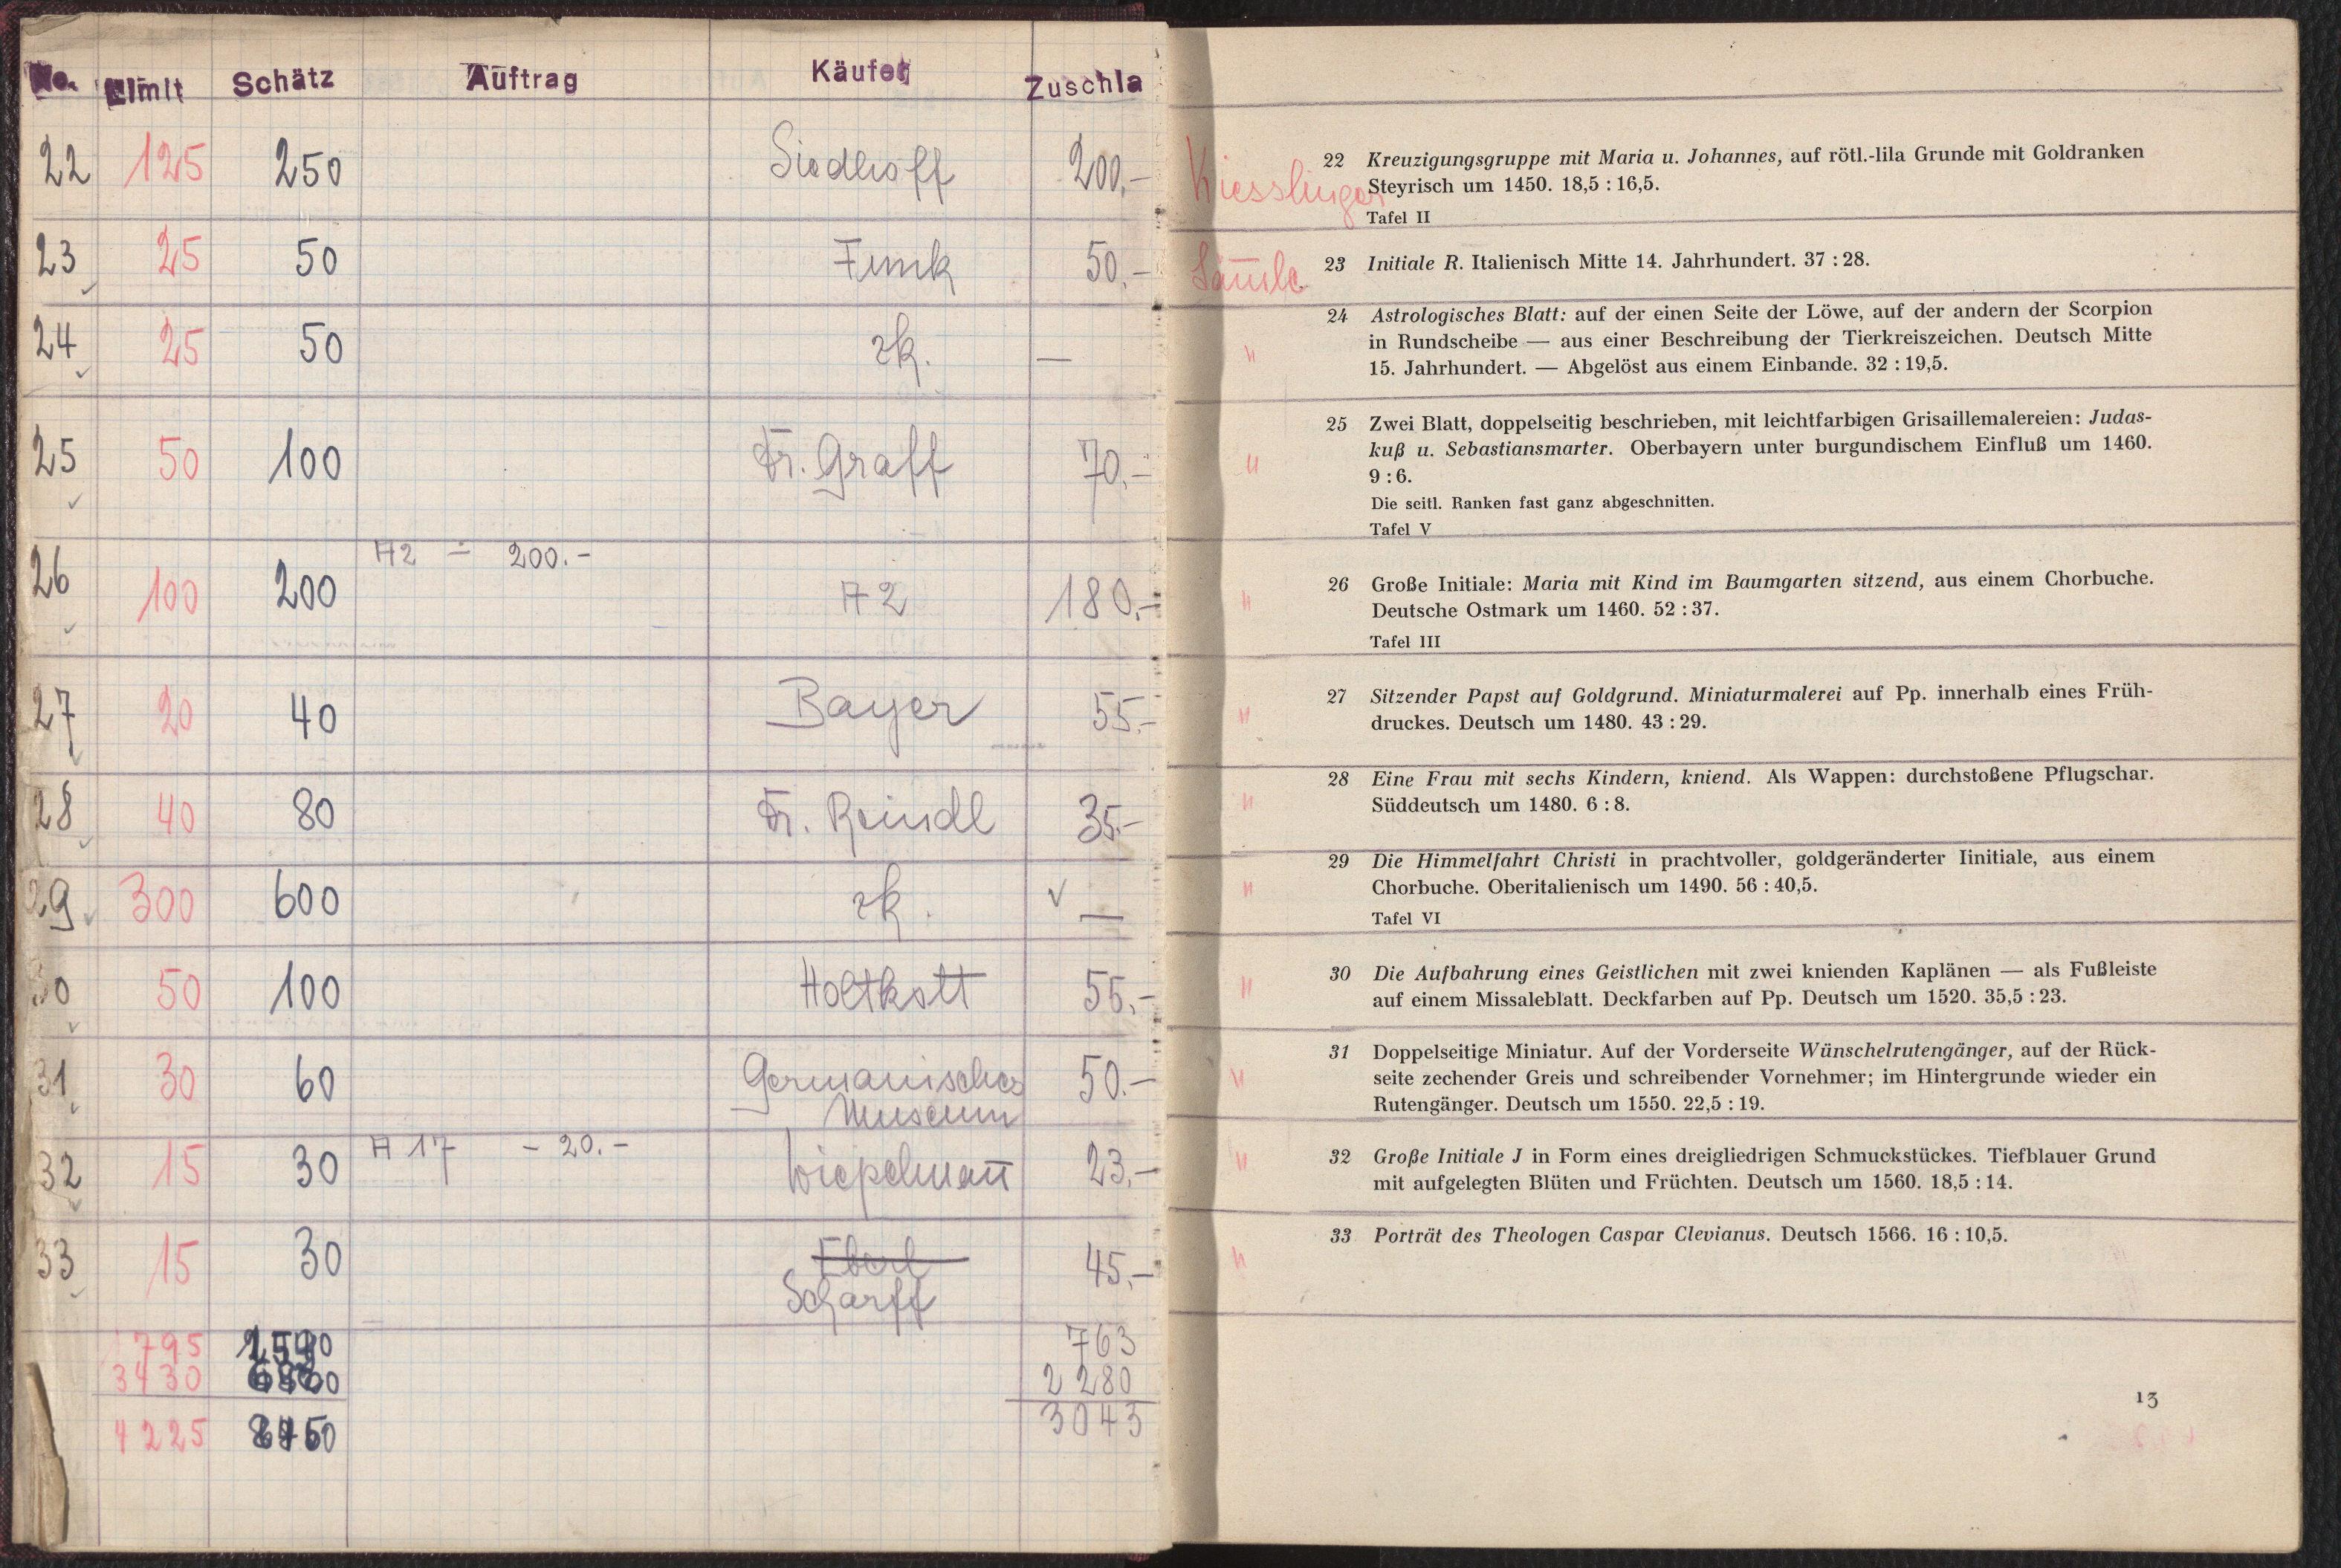 No. Limit Schätz Auftrag Käufer Zuschla
22 125 250 Siedhoff 200,-
23 25 50 Funk 50,-
24 25 50 zk. —
25 50 100 Dr. Graff 70,-
A2 - 200.-
26 100 200 A2 180,-
27 20 40 Bayer 55.-
28 40 80 Dr. Reindl 35.-
29 300 600 zk. —
30 50 100 Holtkott 55,-
31 30 60 Germanisches 50.-
Museum
A 17 - 20.-
32 15 30 Wiepelmañ 23,-
33 15 30 Eberl 45,-
Scharff
795 763
3430 2280
4225 3043
Kiesslinger
22 Kreuzigungsgruppe mit Maria u. Johannes, auf rötl.-lila Grunde mit Goldranken
Steyrisch um 1450. 18,5 : 16,5.
Tafel II
23 Initiale R. Italienisch Mitte 14. Jahrhundert. 37 : 28.
24 Astrologisches Blatt: auf der einen Seite der Löwe, auf der andern der Scorpion
" in Rundscheibe — aus einer Beschreibung der Tierkreiszeichen. Deutsch Mitte
15. Jahrhundert. — Abgelöst aus einem Einbande. 32 : 19,5.
25 Zwei Blatt, doppelseitig beschrieben, mit leichtfarbigen Grisaillemalereien: Judas-
" kuß u. Sebastiansmarter. Oberbayern unter burgundischem Einfluß um 1460.
9 : 6.
Die seitl. Ranken fast ganz abgeschnitten.
Tafel V
26 Große Initiale: Maria mit Kind im Baumgarten sitzend, aus einem Chorbuche.
" Deutsche Ostmark um 1460. 52 : 37.
Tafel III
27 Sitzender Papst auf Goldgrund. Miniaturmalerei auf Pp. innerhalb eines Früh-
" druckes. Deutsch um 1480. 43 : 29.
28 Eine Frau mit sechs Kindern, kniend. Als Wappen: durchstoßene Pflugschar.
" Süddeutsch um 1480. 6 : 8.
29 Die Himmelfahrt Christi in prachtvoller, goldgeränderter Iinitiale, aus einem
" Chorbuche. Oberitalienisch um 1490. 56 : 40,5.
Tafel VI
30 Die Aufbahrung eines Geistlichen mit zwei knienden Kaplänen — als Fußleiste
" auf einem Missaleblatt. Deckfarben auf Pp. Deutsch um 1520. 35,5 : 23.
31 Doppelseitige Miniatur. Auf der Vorderseite Wünschelrutengänger, auf der Rück-
" seite zechender Greis und schreibender Vornehmer; im Hintergrunde wieder ein
Rutengänger. Deutsch um 1550. 22,5 : 19.
" 32 Große Initiale J in Form eines dreigliedrigen Schmuckstückes. Tiefblauer Grund
mit aufgelegten Blüten und Früchten. Deutsch um 1560. 18,5 : 14.
" 33 Porträt des Theologen Caspar Clevianus. Deutsch 1566. 16 : 10,5.
13